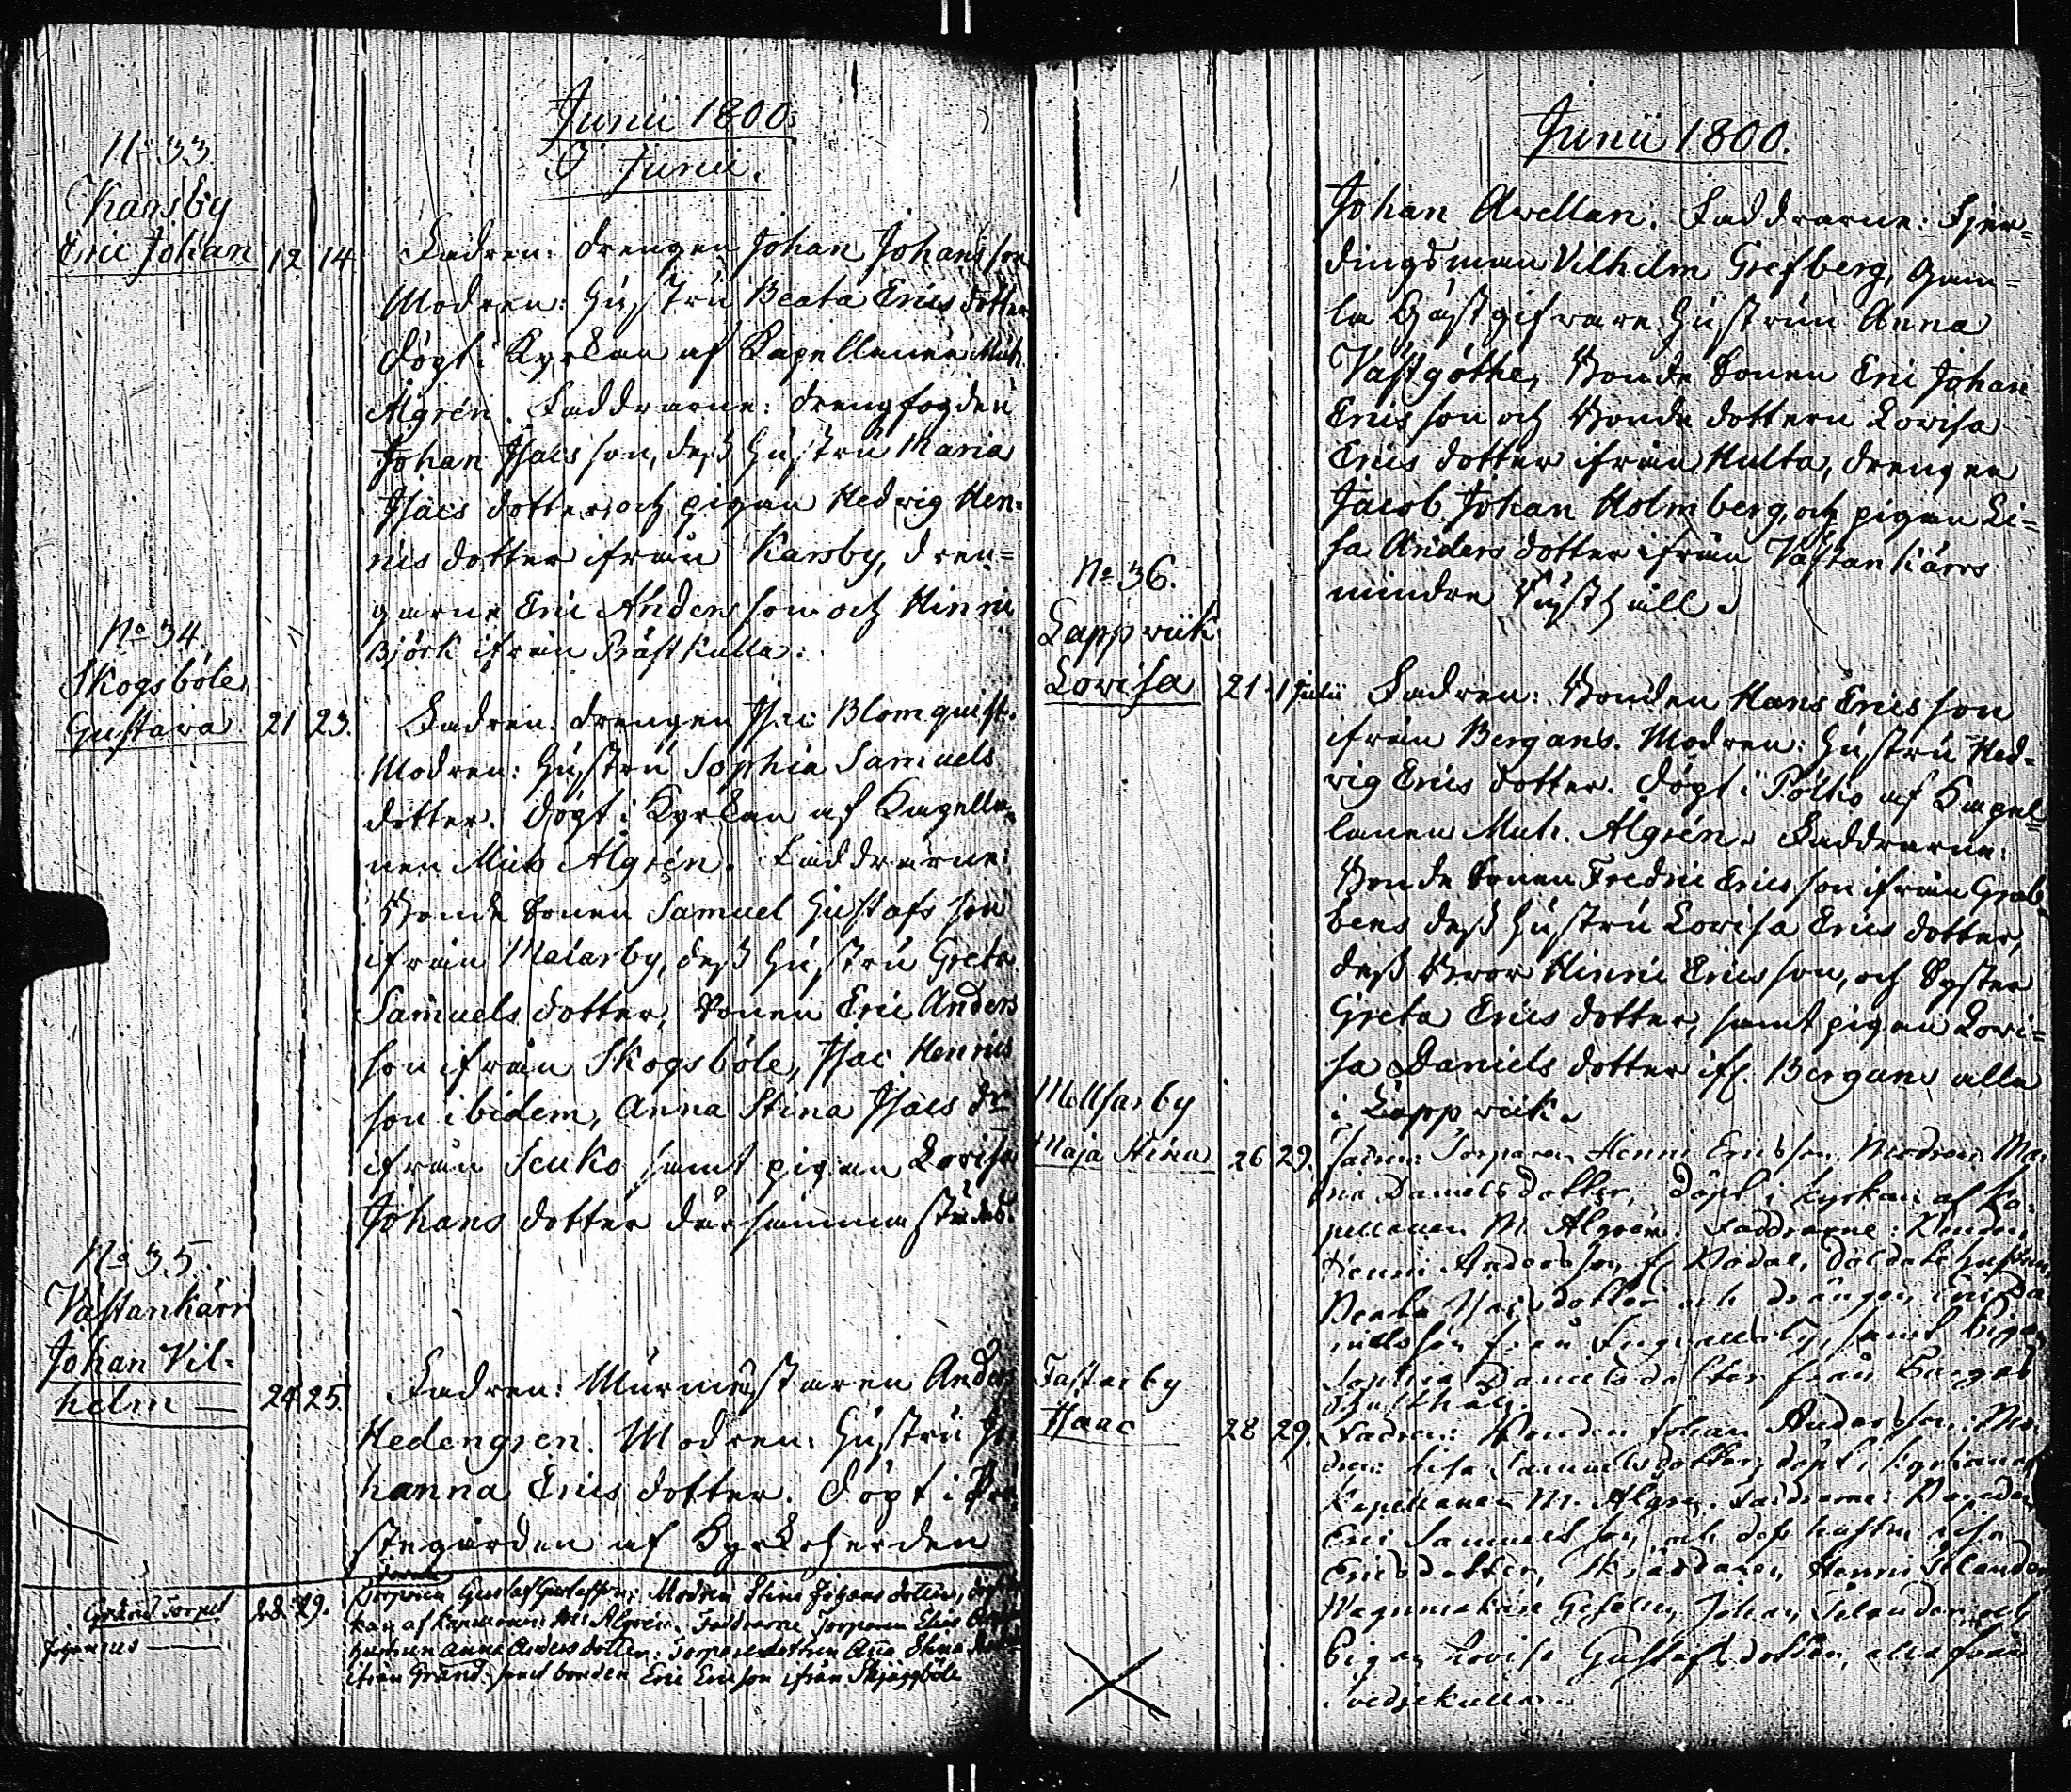 Junii 1800.
I Junii.
No 33
Karsby
Eric Johan 12. 14.
Fadren: drengen Johan Johans son
Modren: Hustru Beata Erics dotter
döpt i Kyrkan af Kapellanen Mich.
Algrén. Faddrarne: drengfogden
Johan Isacs son, dess Hustru Maria
Isacs dotter, och pigan Hedvig Hen-
rics dotter ifrån Karsby, dren=
garne Eric Anders son och Hinric
Björk ifrån Prästkulla.
No 34.
Skogsböle
Gustava 21 23.
Fadren: drengen Isac Blomquist.
Modren: Hustru Sophia Samuels
dotter. döpt i Kyrkan af Kapella-
nen Mich Algrén. Faddrarne:
Bonde Sonen Samuel Gustafs son
ifrån Maiarby, dess Hustru Greta
Samuels dotter, Sonen Eric Anders
son ifrån Skogsböle, Isac Henrics
son ibidem, Anna Stina Isacs dr
ifrån Scuko samt pigan Lovisa
Johans dotter dersammastädes.
No 35.
Västankärr
Johan Vil-
helm — 24. 25.
Fadren: Murmästaren Anders
Hedengren. Modren: Hustru Jo
hanna Erics dotter. Döpt i Pre
stegården af Kyrkoherden
Gränd Torpet
Johannes — 29.
Torparen Gustaf Gustafsson; Modren Stina Johans dotter, döpt
kan af Kapellanen Mich Algrén. Faddrarne Torparen Eric
Hustrun Anna Anders dotter. Torparedottren Anna Stina
ifrån Gränd samt bonden Eric Ericson ifrån Skjäggböle
Junii 1800.
Johan Avellan. Faddrarne: Fjer=
dingsman Vilhelm Grefberg, Gam=
la Gästgifvare Hustrun Anna
Västgöthe, Bonde Sonen Eric Johan
Erics son och Bonde dottern Lovisa
Erics dotter ifrån Hulta, drengen
Jacob Johan Holmberg, och pigan Li=
sa Anders dotter ifrån Västankärrs
mindre Rusthåll.
No. 36.
Lappvik
Lovisa 21. 1 Julii
Fadren: Bonden Hans Erics son
ifrån Bergans. Modren: Hustru Hed-
vig Erics dotter. Döpt i Pölko af Kapel=
lanen Mich. Algrén. Faddrarne:
Bonde Sonen Fredric Erics son ifrån Grab-
bens dess Hustru Lovisa Erics dotter,
dess Bror Hinric Erics son, och Syster
Greta Erics dotter, samt pigan Lovi=
sa Daniels dotter ifr. Bergans alla
i Lappvik.
Mellsarby
Maja Stina 26 29.
Fadren: Torparen Henric Ericsson. Modren: Ma-
ria Daniels dotter, döpt i kyrkan af Ka-
pellanen M. Algrén. Faddrarne: Bonden
Henric Andersson
Beata Isacs dotter och drängen Eric Da
nielsson från samt Pigan
Sophia Daniels dotter från
Rusthåll.
Fastarby
Isaac 28 29.
Fadren: Bonden Johan Andersson: Mo-
dren: Lisa Samuelsdotter, döpt i kyrkan af
Kapellanen M. Algrén. Faddrarne: Bonden
Eric Samuelsson, och dess hustru Lisa
Ericsdotter, Skräddaren Henric Selander
Wagnmakare Gesellen Johan Selander och
Pigan Lovisa Gustafsdotter, alla från
Svedjekulla.